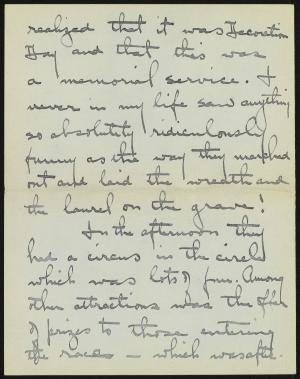 realized that it was Decoration
Day and that this was
a memorial service. I
never in my life saw anything
so absolutely ridiculously
funny as the way they marched
out and laid the wreath and
the laurel on the grave!
In the afternoon they
had a circus in the circle
which was lots of fun. Among
other attractions was the offer
of prizes to those entering
the races – which was after